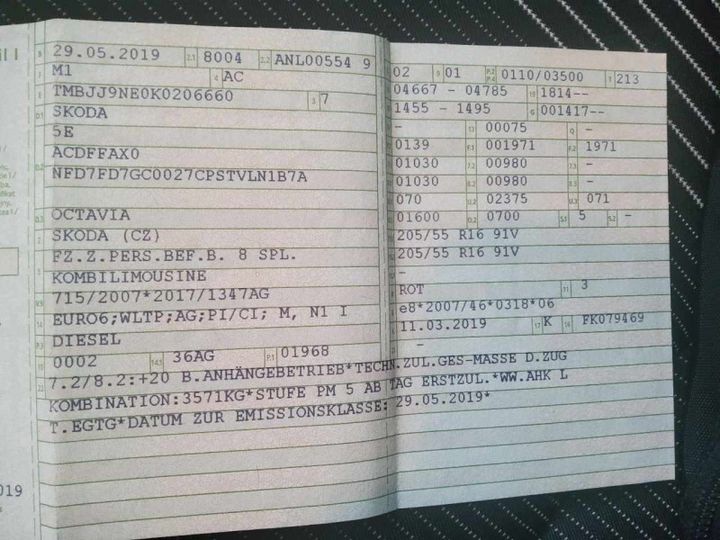 il I
B 29.05.2019 2.1 8004 2.2 ANL00554 9
J M1 4 AC
E TMBJJ9NE0K0206660 3 7
D.1 SKODA
5E
D.2 ACDFFAX0
NFD7FD7GC0027CPSTVLN1B7A
D.3 OCTAVIA
2 SKODA (CZ)
5 FZ.Z.PERS.BEF.B. 8 SPL.
KOMBILIMOUSINE
V.9 715/2007*2017/1347AG
14 EURO6;WLTP;AG;PI/CI; M, N1 I
P.3 DIESEL
10 0002 14.1 36AG P.1 01968
22 7.2/8.2:+20 B.ANHÄNGEBETRIEB*TECHN.ZUL.GES-MASSE D.ZUG
KOMBINATION:3571KG*STUFE PM 5 AB TAG ERSTZUL.*WW.AHK L
T.EGTG*DATUM ZUR EMISSIONSKLASSE: 29.05.2019*
019
02 9 01 P.2 P.4 0110/03500 T 213
04667 - 04785 18 1814--
1455 - 1495 G 001417--
- 13 00075 Q -
0139 F.1 001971 F.2 1971
01030 7.2 00980 7.3 -
01030 8.2 00980 8.3 -
070 U.2 02375 U.3 071
01600 O.2 0700 S.1 5 S.2 -
205/55 R16 91V
205/55 R16 91V
-
ROT 11 3
e8*2007/46*0318*06
11.03.2019 17 K 16 FK079469
-